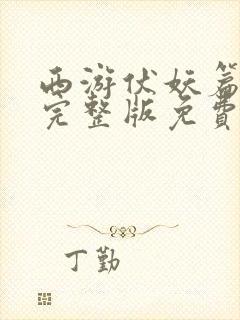 西游伏妖篇
完整版免费
丁勤